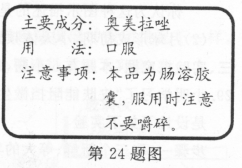 主要成分：奥美拉唑
用　　法：口服
注意事项：本品为肠溶胶
囊，服用时注意
不要嚼碎。
第24题图